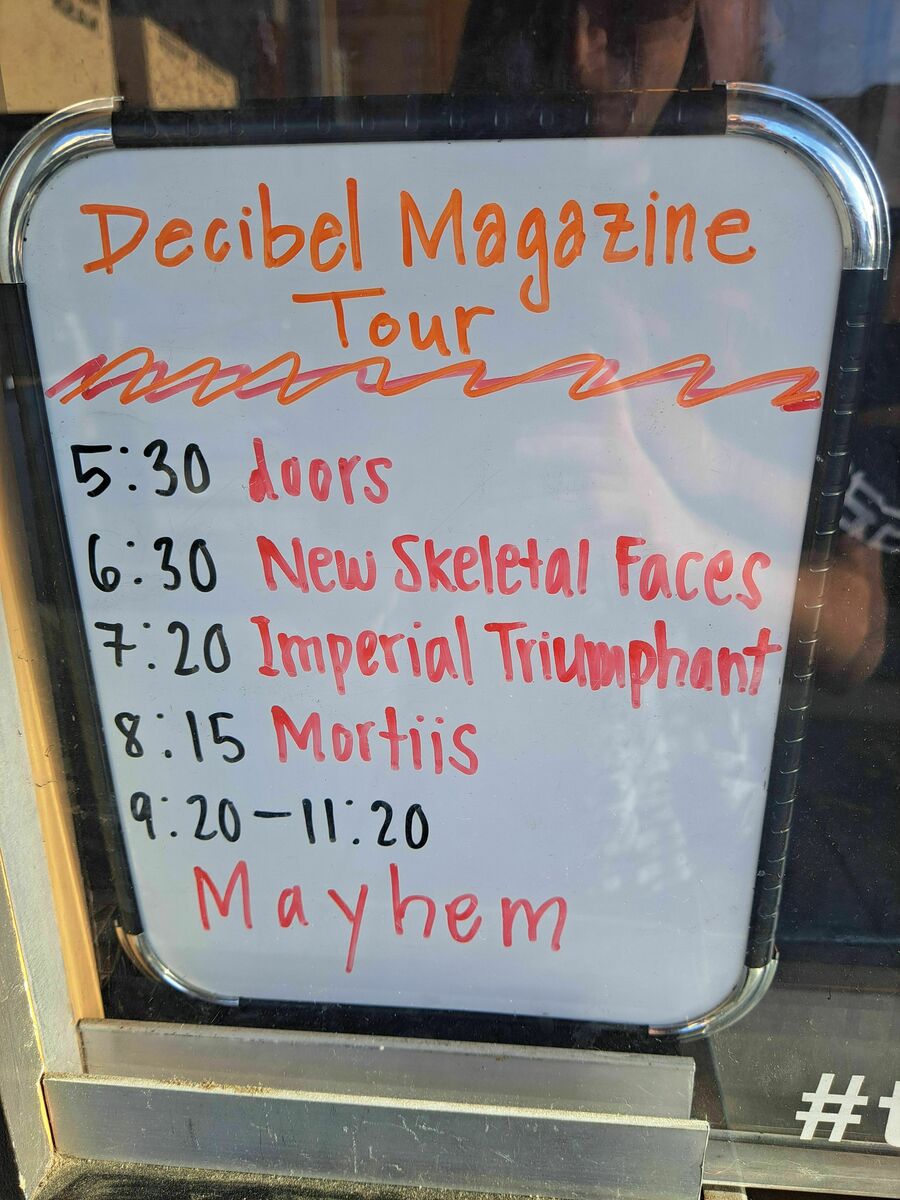 Decibel Magazine
Tour
5:30 doors
6:30 New Skeletal Faces
7:20 Imperial Triumphant
8:15 Mortiis
9:20-11:20
Mayhem